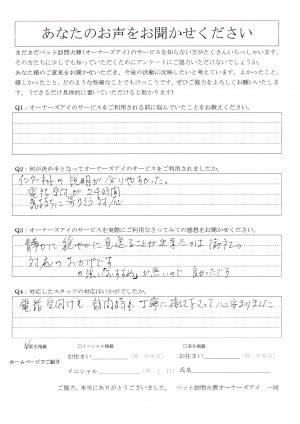 あなたのお声をお聞かせください
まだまだペット訪問火葬(オーナーズアイ)のサービスを知らない方がたくさんいらっしゃいます。
その方たちに少しでも知っていただくためにアンケートにご協力いただけないでしょうか。
あなた様のご意見をお聞かせいただき、今後の活動に反映したいと考えています。よかったこと、
嬉しかったこと、どのような些細なことでもけっこうです。ぜひご協力をよろしくお願いいたしま
す。(できるだけ具体的に書いていただけると助かります)
Q1：オーナーズアイのサービスをご利用される前に悩んでいたことをお教えください。
Q2：何が決め手となってオーナーズアイのサービスをご利用されましたか。
インターネットの説明が分りやすかった。
電話受付が24時間
気持ちに寄りそう対応
Q3：オーナーズアイのサービスを実際にご利用なさってみての感想をお聞かせください。
静かに穏やかに見送ることが出来たのは御社の
対応のおかげです
の強い"おすすめ"が無いので良かったです
Q4：対応したスタッフの対応はいかがでしたか。
電話受付も訪問時も丁寧に接して下さって心安まりました
実名掲載
□イニシャル掲載
□匿名掲載
ホームページでご紹介
お住まい
(例：中央区)
お住まい
(例：中央区)
イニシャル
(例：T．H)
氏名
ご協力、本当にありがとうございました。 ペット訪問火葬オーナーズアイ 一同